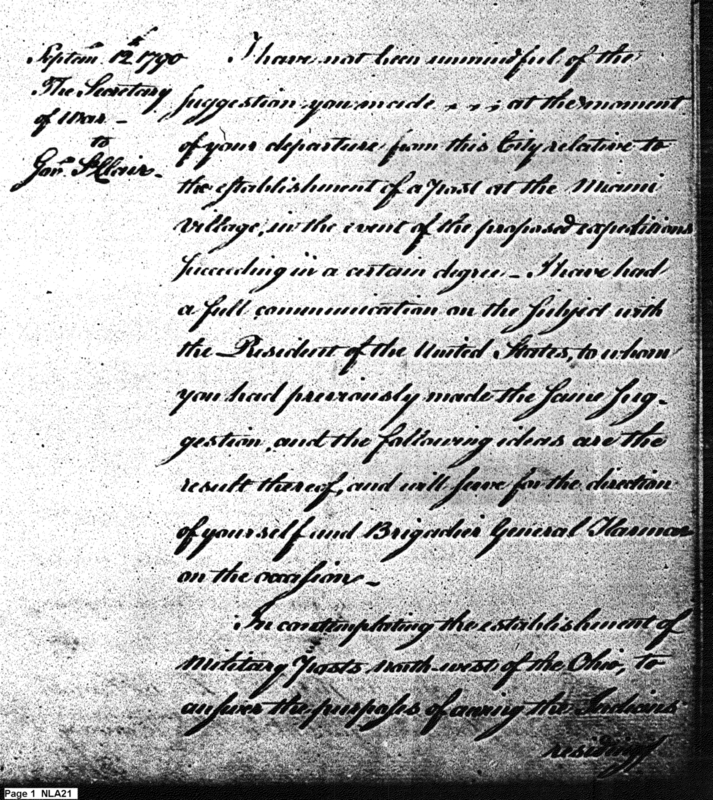 Septem. 12th 1790
The Secretary
of War -
to
Govr. St Clair -
I have not been unmindful of the
suggestion you made at the moment
of your departure from this City relative to
the establishment of a post at the Miami
Village, in the event of the proposed expeditions
succeeding in a certain degree - I have had
a full communication on the subject with
the President of the United States, to whom
you had previously made the same sug-
gestion, and the following ideas are the
result thereof, and will serve for the direction
of yourself and Brigadier General Harmar
on the occasion -
In contemplating the establishment of
Military Posts north-west of the Ohio, to
answer the purposes of awing the Indians
residing
Page 1 NLA21